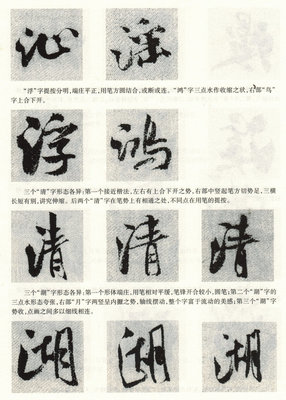 沁 淫
“浮”字提按分明,端庄平正,用笔方圆结合,或断或连。“鸿”字三点水作收缩之状,右部“鸟”
字上合下开。
浮 鸿
三个“清”字形态各异:第一个接近楷法,左右有上合下开之势,右部中竖起笔方切势足,三横
长短有别,讲究伸缩。后两个“清”字在笔势上有相通之处,不同点在用笔的提按。
清 清 清
三个“湖”字形态各异:第一个形体端庄,用笔相对平缓,笔锋开合较小,圆笔;第二个“湖”字的
三点水形态夸张,右部“月”字两竖呈内擫之势,轴线摆动,整个字富于流动的美感;第三个“湖”字
势收,点画之间多以细线相连。
湖 湖 湖